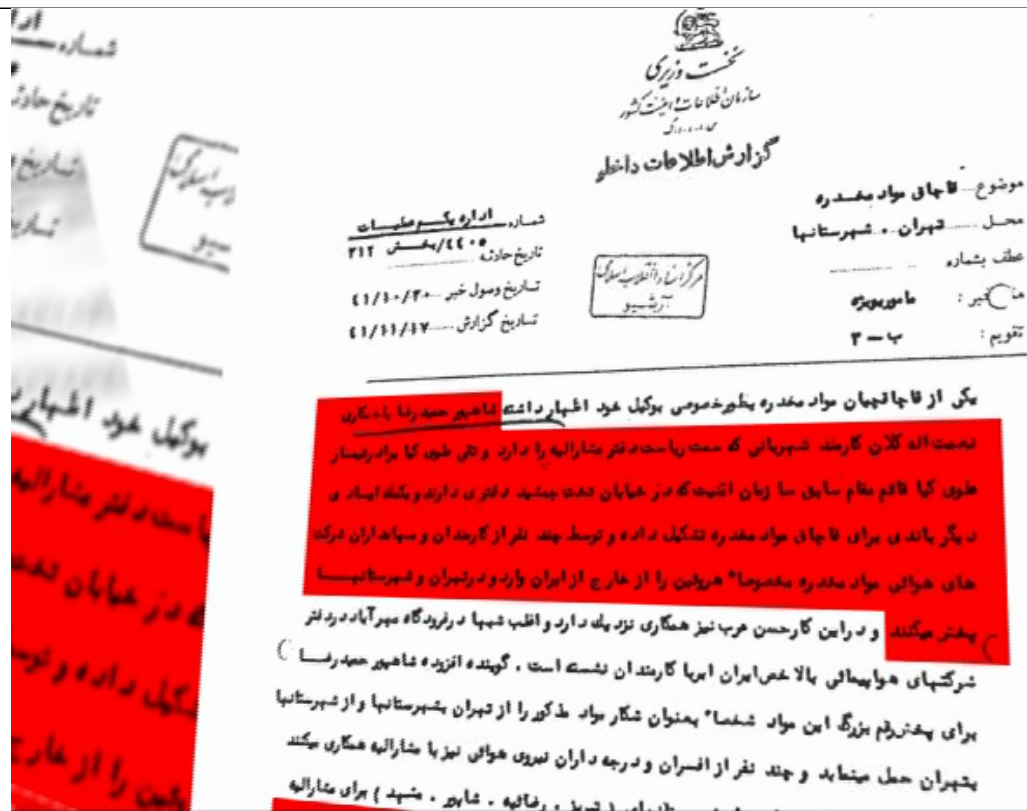 نخست وزیری
سازمان اطلاعات و امنیت کشور
س.ا.و.ا.ک
گزارش اطلاعات داخلی
موضوع قاچاق مواد مخدره
محل تهران . شهرستانها
عطف بشماره
خبر : مامورویژه
تقویم : ب-۳
شماره اداره یکم عملیات
۴۴۰۵/بخش ۳۱۲
تاریخ حادثه
تاریخ وصول خبر ۴۱/۱۰/۳۰
تاریخ گزارش ۴۱/۱۱/۱۷
مرکز اسناد انقلاب اسلامی
آرشیو
یکی از قاچاقچیان مواد مخدره بطورخصوصی بوکیل خود اظهارداشته شاهپور حمیدرضا باهمکاری
نعمت اله کلان کارمند شهربانی که سمت ریاست دفتر مشارالیه را دارد و تقی علوی کیا برادرتیمسار
علوی کیا قائم مقام سابق سازمان امنیت که در خیابان تخت جمشید دفتری دارند و یکعده ایادی
دیگر باندی برای قاچاق مواد مخدره تشکیل داده و توسط چند نفر از کارمندان و مهمانداران شرکت
های هوائی مواد مخدره مخصوصا" هروئین را از خارج از ایران وارد و درتهران و شهرستانها
پخش میکنند و در این کارحسن عرب نیز همکاری نزدیك دارد و اغلب شبها درفرودگاه مهرآباد دردفتر
شرکتهای هواپیمائی بالاخص ایران ایربا کارمندان نشسته است . گوینده افزوده شاهپور حمیدرضا
برای پخش رقم بزرگ این مواد شخصا" بعنوان شکار مواد مذکور را از تهران بشهرستانها و از شهرستانها
بتهران حمل مینماید و چند نفر از افسران و درجه داران نیروی هوائی نیز با مشارالیه همکاری میکنند
( تبریز . رضائیه . شاهپور . مشهد ) برای مشارالیه